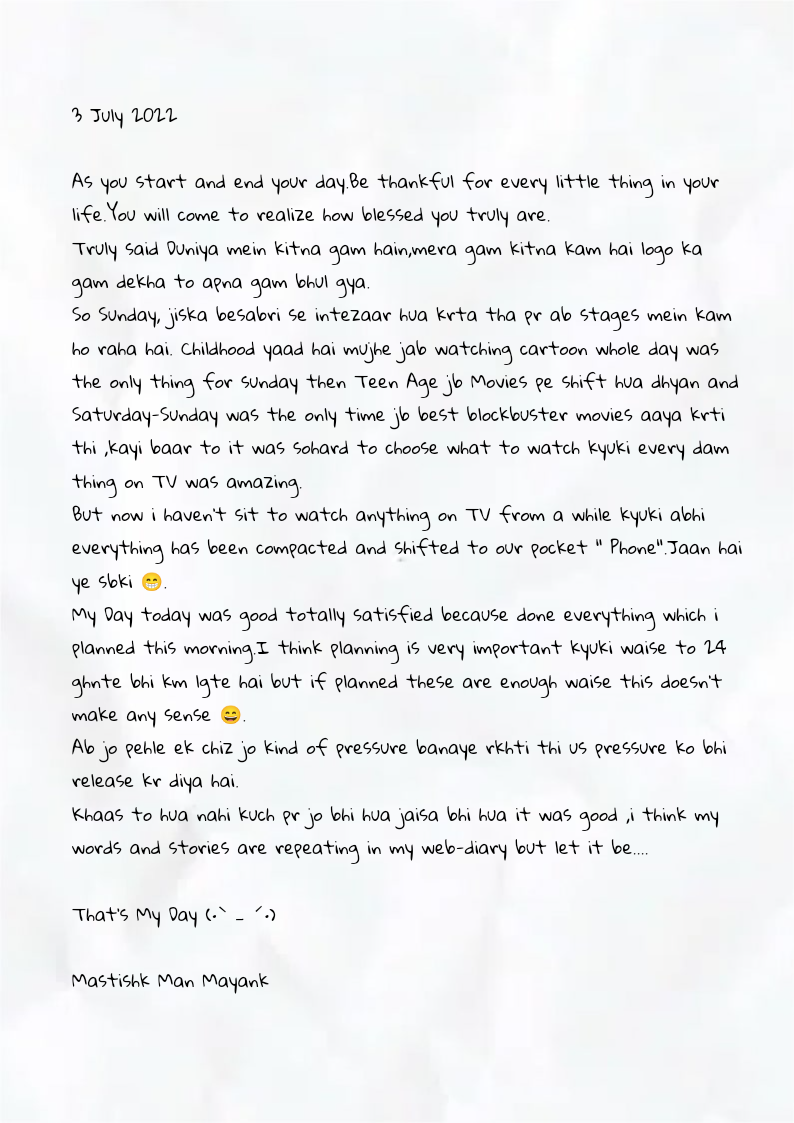 3 July 2022
As you start and end your day.Be thankful for every little thing in your
life.You will come to realize how blessed you truly are.
Truly said Duniya mein kitna gam hain,mera gam kitna kam hai logo ka
gam dekha to apna gam bhul gya.
So Sunday, jiska besabri se intezaar hua krta tha pr ab stages mein kam
ho raha hai. Childhood yaad hai mujhe jab watching cartoon whole day was
the only thing for sunday then Teen Age jb Movies pe shift hua dhyan and
Saturday-Sunday was the only time jb best blockbuster movies aaya krti
thi ,kayi baar to it was sohard to choose what to watch kyuki every dam
thing on TV was amazing.
But now i haven't sit to watch anything on TV from a while kyuki abhi
everything has been compacted and shifted to our pocket " Phone".Jaan hai
ye sbki 😁.
My Day today was good totally satisfied because done everything which i
planned this morning.I think planning is very important kyuki waise to 24
ghnte bhi km lgte hai but if planned these are enough waise this doesn't
make any sense 😄.
Ab jo pehle ek chiz jo kind of pressure banaye rkhti thi us pressure ko bhi
release kr diya hai.
Khaas to hua nahi kuch pr jo bhi hua jaisa bhi hua it was good ,i think my
words and stories are repeating in my web-diary but let it be....
That's My Day (•ˋ _ ˊ•)
Mastishk Man Mayank